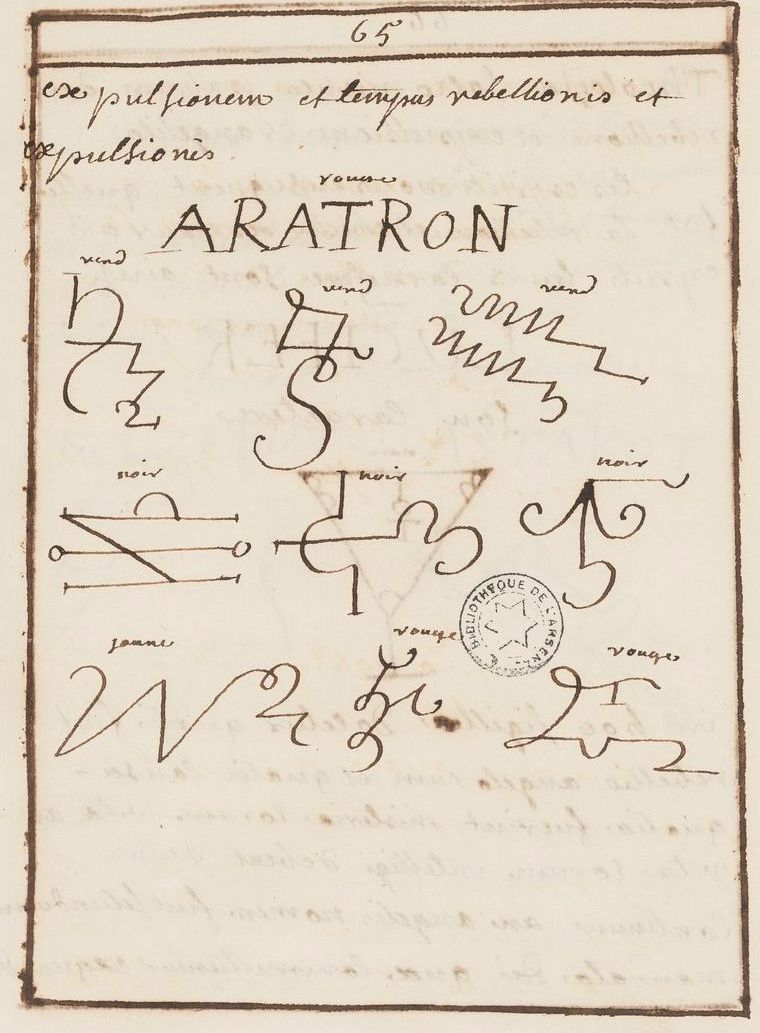 65
expulsionem et tempus rebellionis et
expulsionis
rouge
ARATRON
verd verd verd
noir noir noir
BIBLIOTHEQUE DE L'ARSENAL
jaune rouge rouge